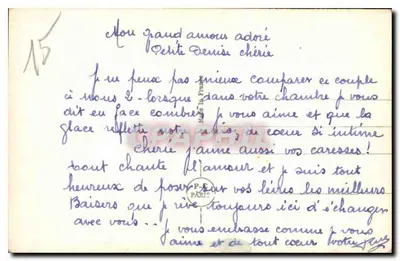 15
Mon grand amour adoré
Petite Denise chérie
je ne peux pas mieux comparer ce couple
à nous 2 - lorsque dans votre chambre je vous
dit en face combien je vous aime et que la
glace reflette de cœur si intime
chérie j'aime aussi vos caresses !
tout chante l'amour et je suis tout
heureux de poser sur vos lèvres les meilleurs
Baisers que je rêve toujours ici d'échanger
avec vous... je vous embrasse comme je vous
aime et de tout cœur votre
Made in France
PARIS